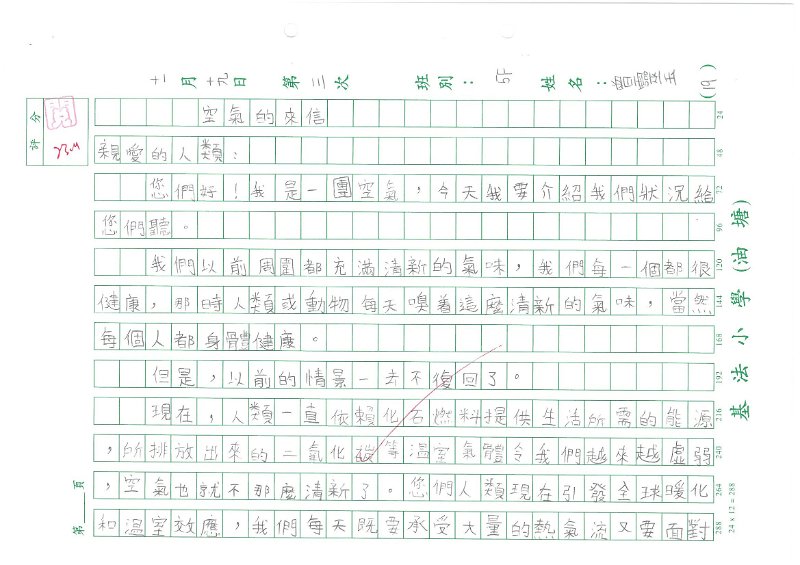 十二月十九日 第三次 班別：5F 姓名： (19)
評分 閱
空氣的來信
24
親愛的人類：
48
您們好！我是一團空氣，今天我要介紹我們狀況給
72
您們聽。
96
我們以前周圍都充滿清新的氣味，我們每一個都很
120
健康，那時人類或動物每天嗅着這麼清新的氣味，當然
144
每個人都身體健康。
168
但是，以前的情景一去不復回了。
192
現在，人類一直依賴化石燃料提供生活所需的能源
216
，所排放出來的二氧化碳等溫室氣體令我們越來越虛弱
240
，空氣也就不那麼清新了。您們人類現在引發全球暖化
264
和溫室效應，我們每天既要承受大量的熱氣流又要面對
288
24 x 12 = 288
第 頁
基法小學(油塘)